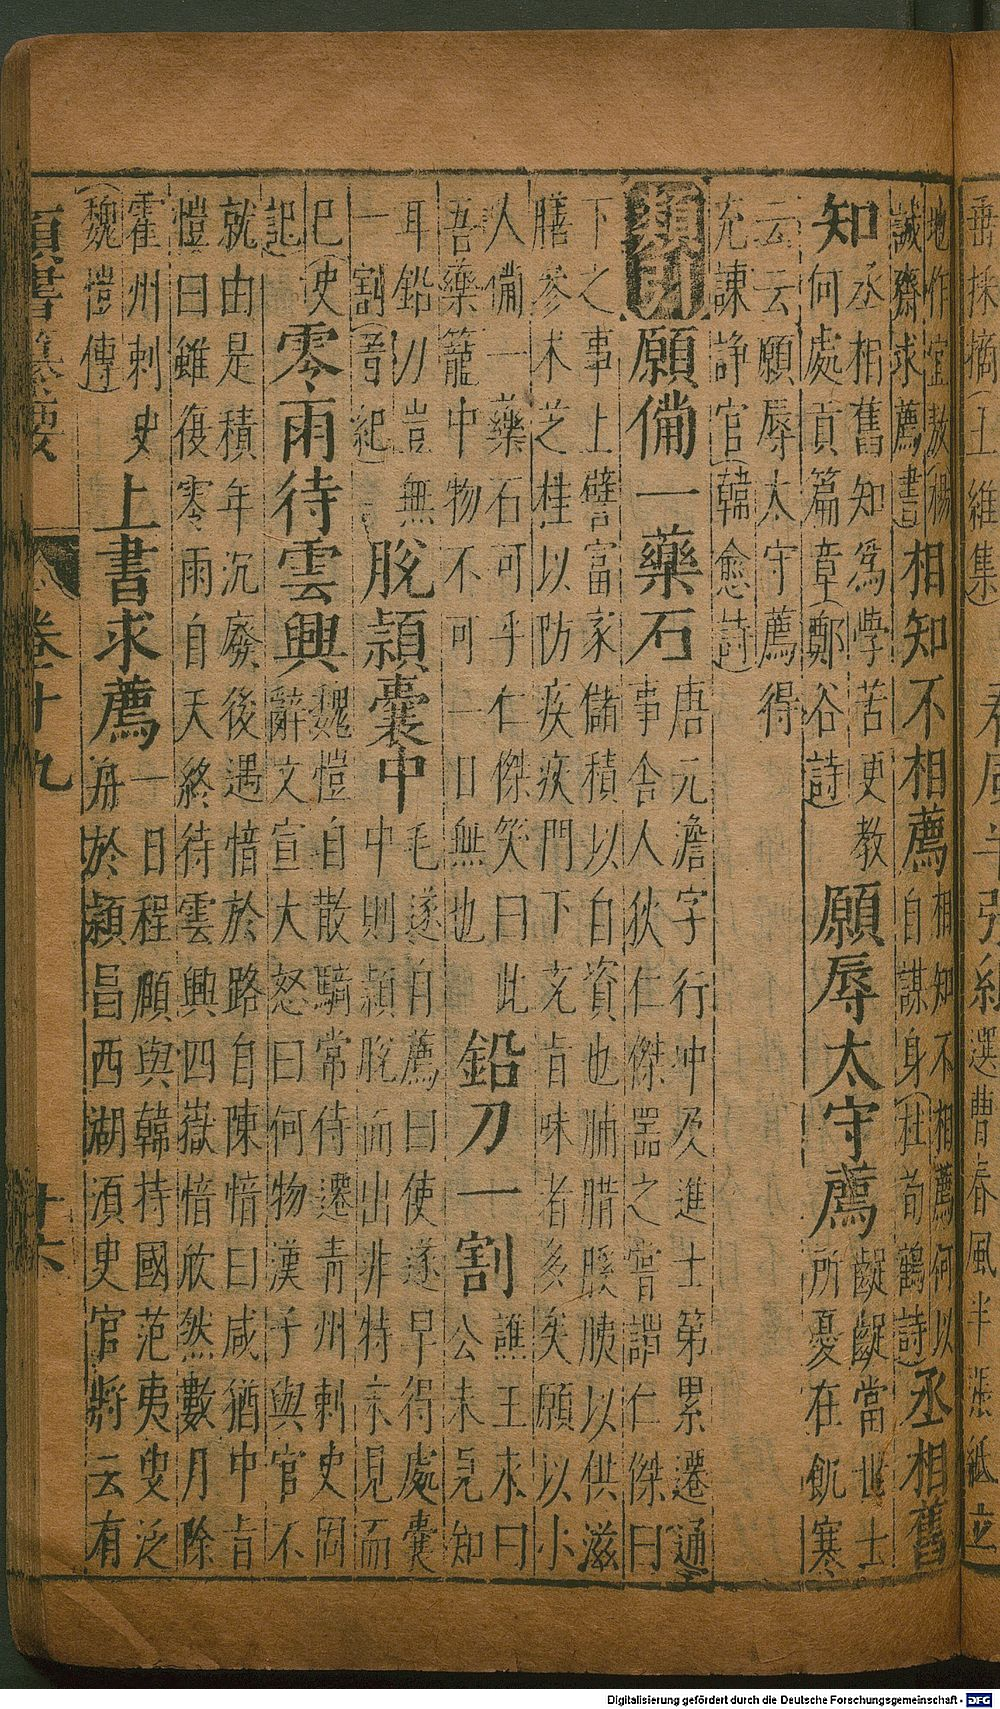 冊採摘(王維集) 春風半張紙 選曹春風半張紙立
地作室敖楊
誠齋求薦書)
相知不相薦
相知不相薦何以
自謀身(杜荀鶴詩)
丞相舊
知
丞相舊知為學苦更教
何處貢篇章(鄭谷詩)
願辱太守薦
齪齪當世士
所憂在飢寒
云云願辱太守薦得
充諫諍官(韓愈詩)
願備一藥石
唐元澹字行冲及進士第累遷通
事舍人狄仁傑器之嘗謂仁傑曰
下之事上譬富家儲積以自資也脯腊膎胰以供滋
膳參朮芝桂以防疾疢門下充旨味者多矣願以小
人備一藥石可乎仁傑笑曰此
吾藥籠中物不可一日無也
鉛刀一割
譙王承曰
公未見知
耳鉛刀豈無
一割(晉紀)
脫潁囊中
毛遂自薦曰使遂早得處囊
中則穎脫而出非特末見而
已(史
記)
零雨待雲興
魏愷自散騎常侍遷青州刺史固
辭文宣大怒曰何物漢子與官不
就由是積年沉廢後遇愔於路自陳愔曰咸猶中旨
愷曰雖復零雨自天終待雲興四嶽愔欣然數月除
霍州刺史
(魏愷傳)
上書求薦
一日程頤與韓持國范夷叟泛
舟於潁昌西湖須臾官將云有
類書纂要 卷十九 十六
Digitalisierung gefördert durch die Deutsche Forschungsgemeinschaft - DFG